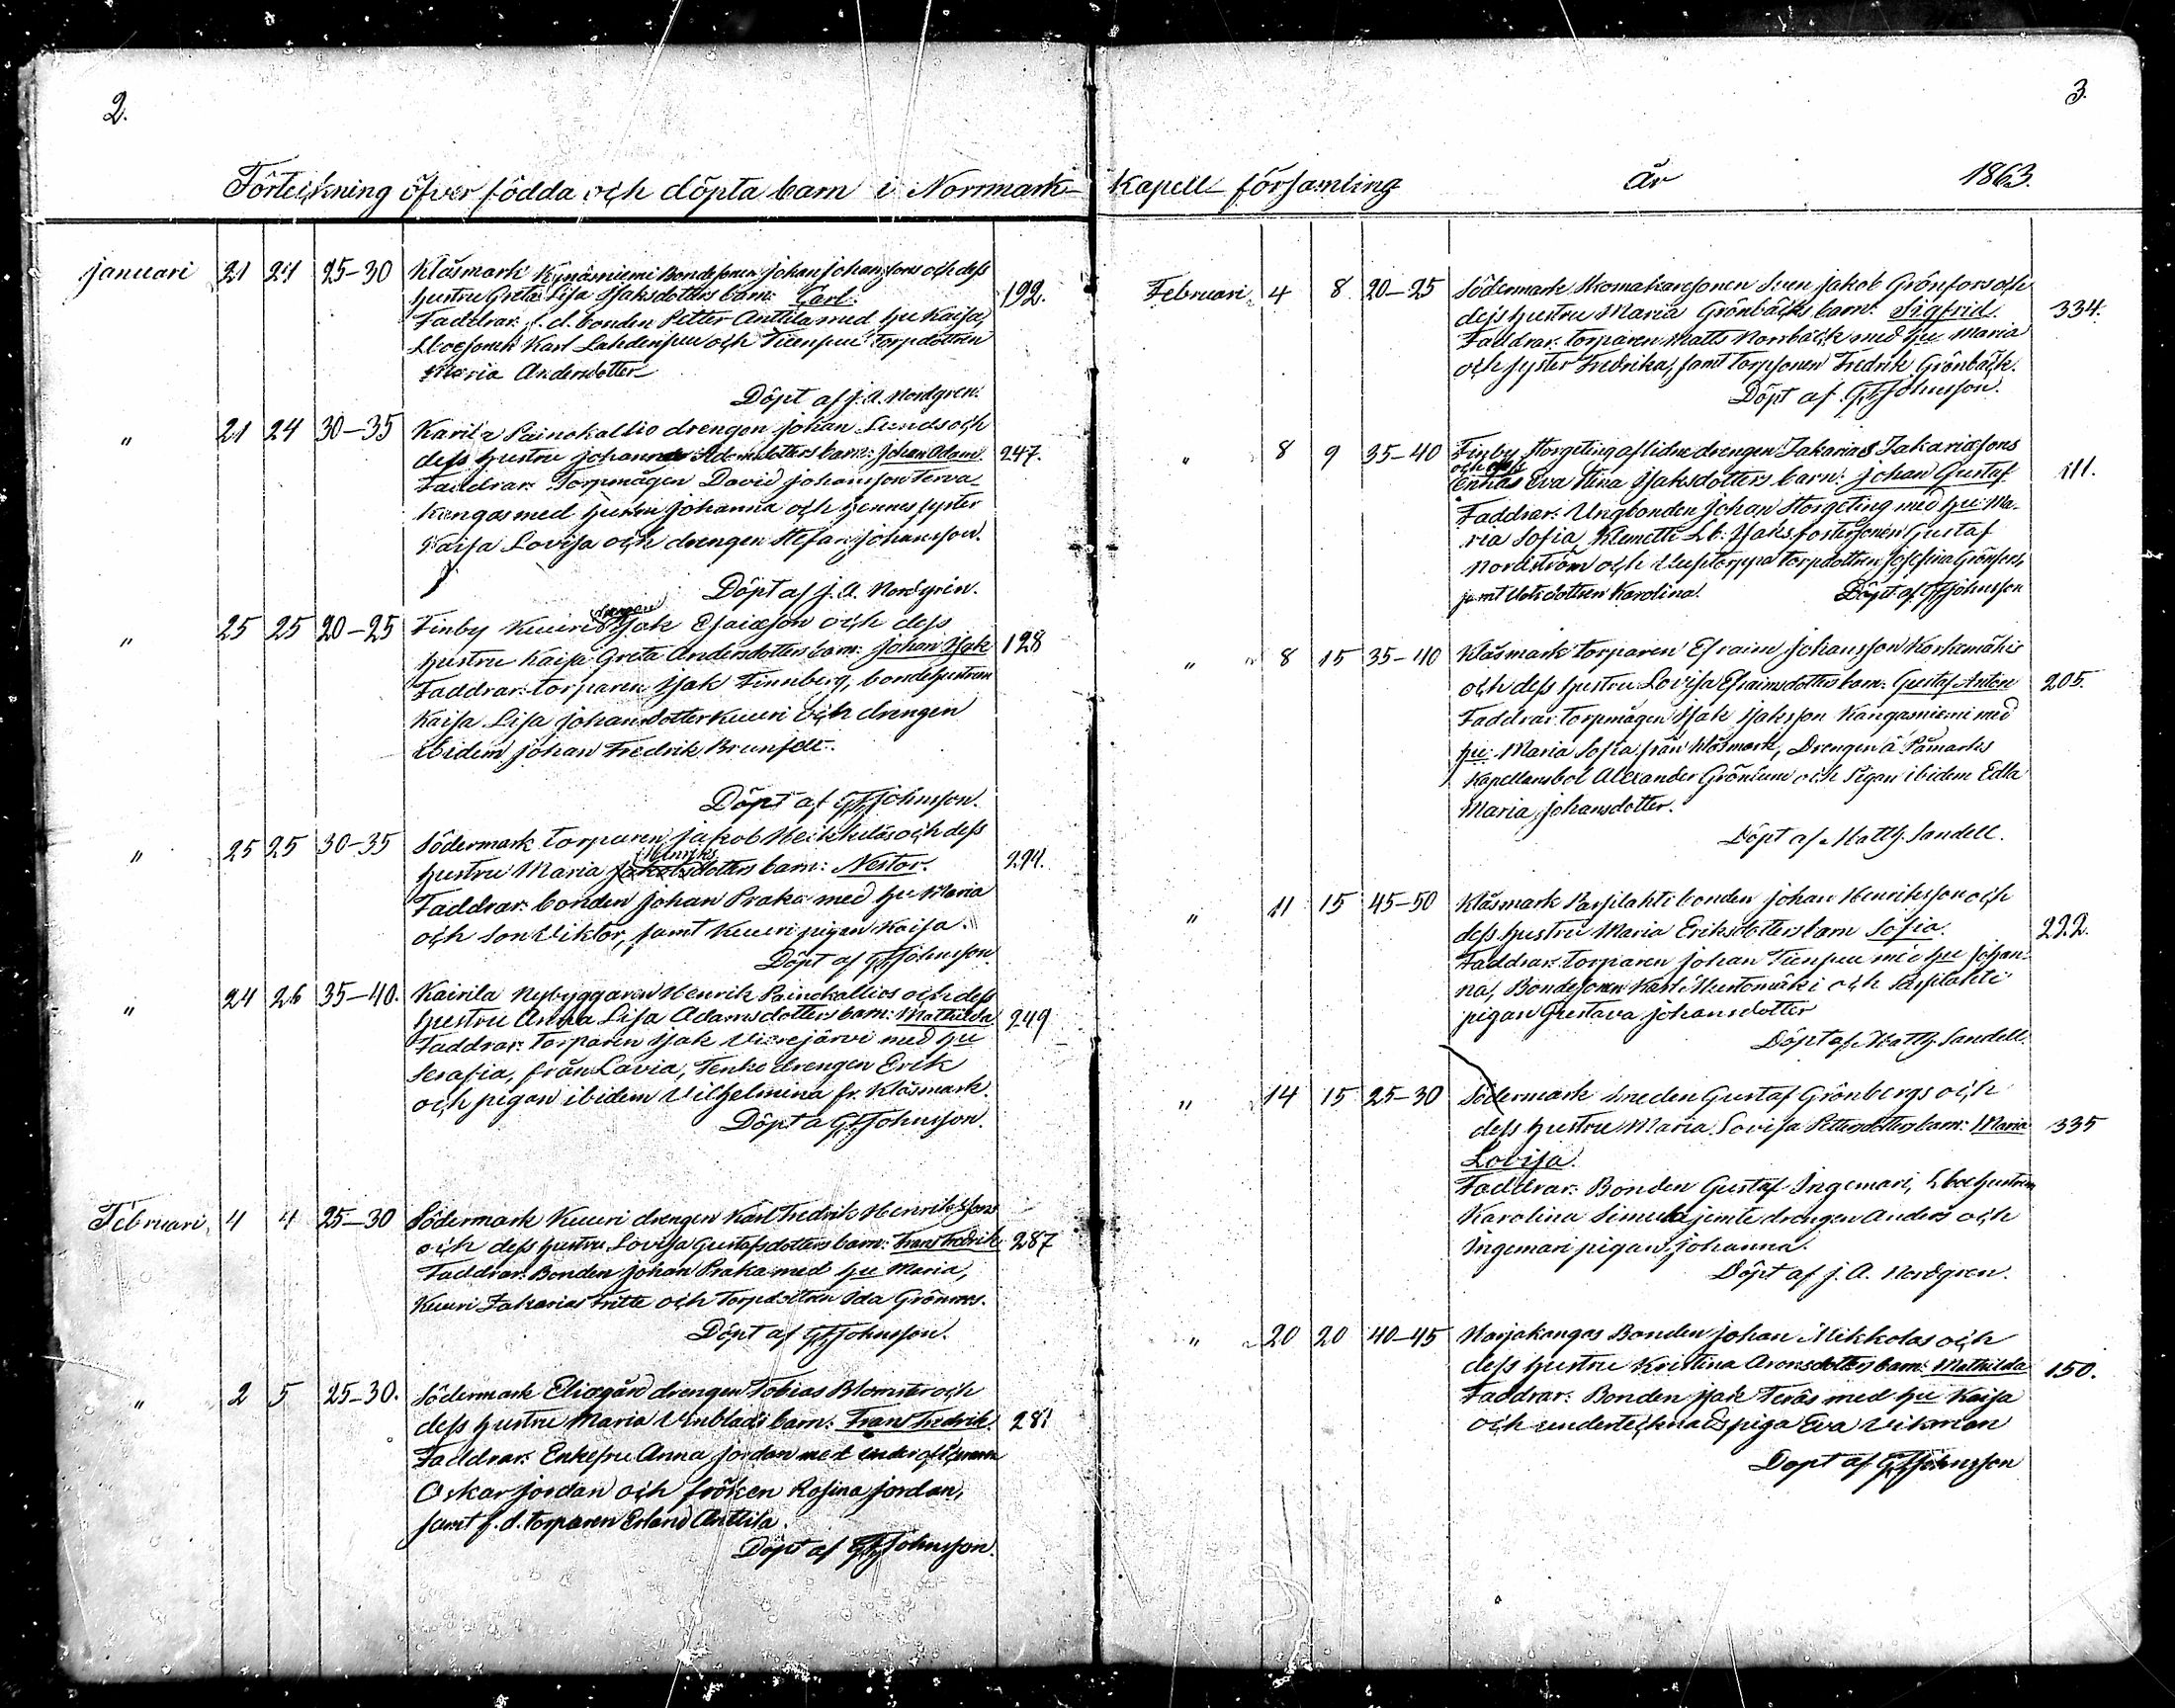 2.
Förteckning öfver födda och döpta barn i Norrmark
januari 21 24 25-30 Klåsmark Kynäsniemi Bondesonen Johan Johanssons och dess
hustru Greta Lisa Isaksdotters barn: Carl. 192.
Faddrar: f. d. bonden Petter Anttila med hu Kaisa,
Karl Lahdenpuu och Tuenpuu Torpdottren
Maria Andersdotter
Döpt af J. A. Nordgren.
" 21 24 30-35 Karila Painokallio drengen Johan Lunds och
dess hustru Johanna Adamsdotters barn: Johan Adam 247.
Faddrar: Torpmågen David Johansson Terva
kangas med hustru Johanna och hennes syster
Kaisa Lovisa och drengen Stefan Johansson.
Döpt af J. A. Nordgren.
" 25 25 20-25 Finby Kuuri drengen Isak Esaiasson och dess
hustru Kaisa Greta Andersdotters barn: Johan Isak 128
Faddrar: torparen Isak Finnberg, bondehustrun
Kaisa Lisa Johansdotter Kuuri och drengen
ibidem Johan Fredrik Brunfelt.
Döpt af G F Johnsson.
" 25 25 30-35 Södermark torparen Jakob Heikkiläs och dess
hustru Maria Henriksdotters barn: Nestor. 294.
Faddrar: bonden Johan Praka med hu Maria
och son Viktor, samt Kuuri pigan Kaisa.
Döpt af G F Johnsson.
" 24 26 35-40. Kairila Nybyggaren Henrik Painokallios och dess
hustru Anna Lisa Adamsdotters barn: Mathilda 249
Faddrar: Torparen Isak Vierejärvi med hu
Serafia, från Lavia, Tenke drengen Erik
och pigan ibidem Vilhelmina fr. Klåsmark.
Döpt a G F Johnsson.
Februari, 4 4 25-30 Södermark Kuuri drengen Karl Fredrik Henrikssons
och dess hustru Lovisa Gustafsdotters barn: Frans Fredrik 287
Faddrar: Bonden Johan Praka med hu Maria,
Kuuri Zakarias Fritte och Torpdottren Ida Grönroos.
Döpt af G F Johnsson.
" 2 5 25-30. Södermark Eliagård drengen Tobias Blomster och
dess hustru Maria Vinblads barn: Frans Fredrik. 281
Faddrar: Enkefru Anna Jordan med underofficeraren
Oskar Jordan och fröken Rosina Jordan,
samt f. d. torparen Erland Anttila.
Döpt af G F Johnsson.
3.
Kapell- församling år 1863.
Februari, 4 8 20-25 Södermark Skomakaresonen Sven Jakob Grönfors och
dess hustru Maria Grönbäcks barn: Sigfrid. 334.
Faddrar: torparen Matts Norrbäck med hu Maria
och syster Fredrika, samt torpsonen Fredrik Grönbäck.
Döpt af G F Johnsson.
" 8 9 35-40 Finby Storgeting aflidne drengen Zakarias Zakariassons
och dess
Enkas Eva Stina Isaksdotters barn: Johan Gustaf 111.
Faddrar: Ungbonden Johan Storgeting med hu: Ma-
ria Sofia, Klemetti Lb: Isaks fostersonen Gustaf
Nordström och torpdottren Josefina Grönfors,
samt dottren Karolina. Döpt af G F Johnsson
" 8 15 35-40 Klåsmark torparen Efraim Johansson Korkeamäkis
och dess hustru Lovisa Efraimsdotters barn: Gustaf Anton 205.
Faddrar: torpmågen Isak Isaksson Kangasniemi med
hu: Maria Sofia från Klåsmark, Drengen å Påmarks
Kapellansbol Alexander Grönlund och Pigan ibidem Edla
Maria Johansdotter.
Döpt af Matth. Sandell.
" 11 15 45-50 Klåsmark Parsilahti bonden Johan Henriksson och
dess hustru Maria Eriksdotters barn Sofia. 222.
Faddrar: torparen Johan Tuenpuu med hu Johan-
na, Bondesonen Karl Mustomäki och Parsilahti
pigan Gustava Johansdotter
Döpt af Matth. Sandell.
" 14 15 25-30 Södermark smeden Gustaf Grönbergs och
dess hustru Maria Lovisa Pettersdotters barn: Maria 335
Lovisa.
Faddrar: Bonden Gustaf Ingemari, hustrun
Karolina Simula jemte drengen Anders och
Ingemari pigan Johanna.
Döpt af J. A. Nordgren.
" 20 20 40-45 Harjakangas Bonden Johan Mikkolas och
dess hustru Kristina Aronsdotters barn: Mathilda 150.
Faddrar: Bonden Isak Teräs med hu Kaisa
och undertecknads piga Eva Vikman
Döpt af G F Johnsson